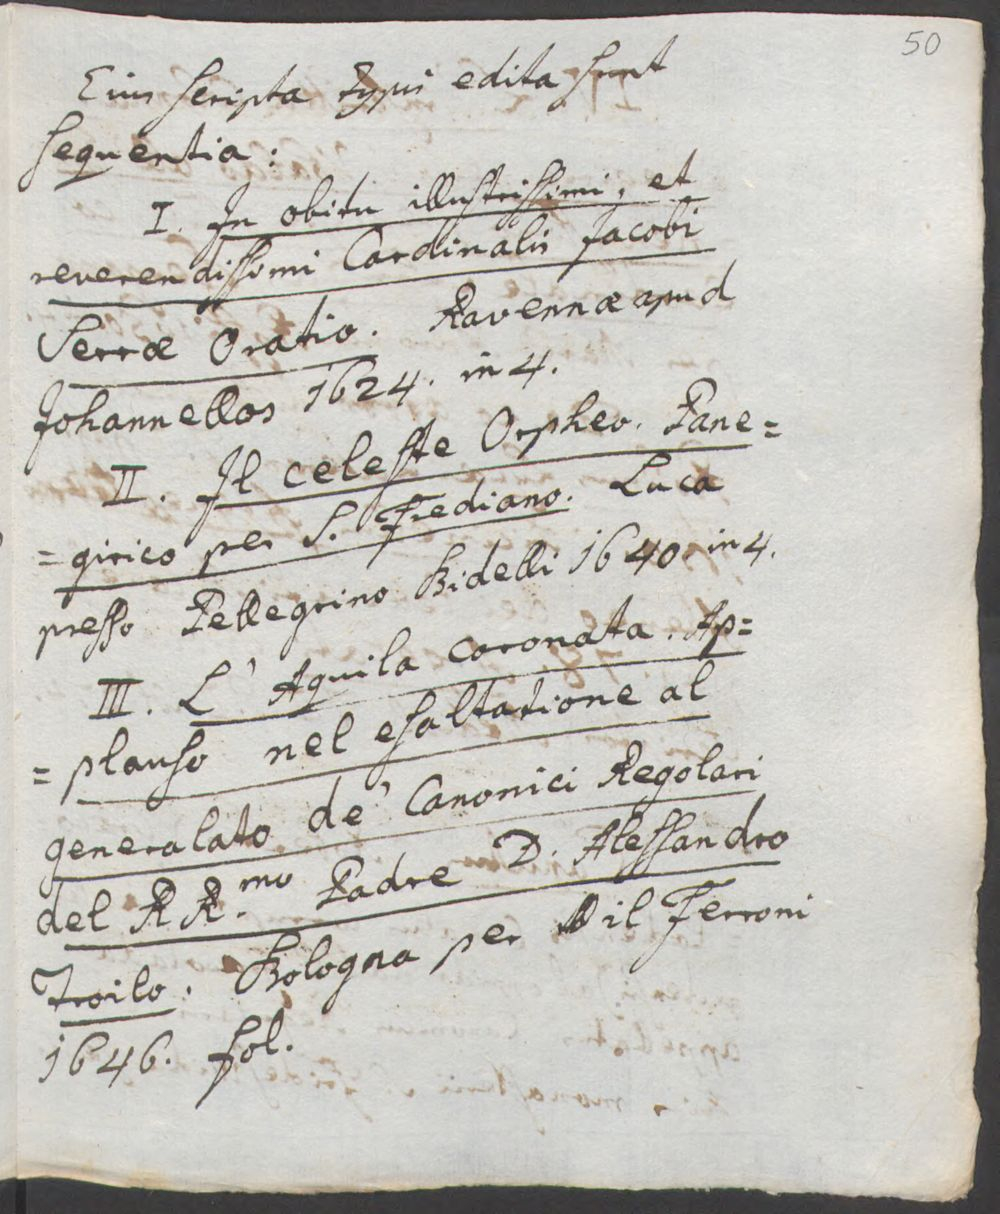 50
Eius scripta typis edita sunt
sequentia:
I. In obitu illustrissimi, et
reverendissimi Cardinalis Jacobi
Serræ Oratio. Ravennæ apud
Johannellos 1624. in 4.
II. Il celeste Orpheo. Pane=
=girico per S. Frediano. Luca
presso Pellegrino Bidelli 1640. in 4.
III. L' Aquila coronata. Ap=
=plauso nel esaltatione al
generalato de' Canonici Regolari
del RR.mo Padre D. Alessandro
Troilo. Bologna per il Ferroni
1646. fol.